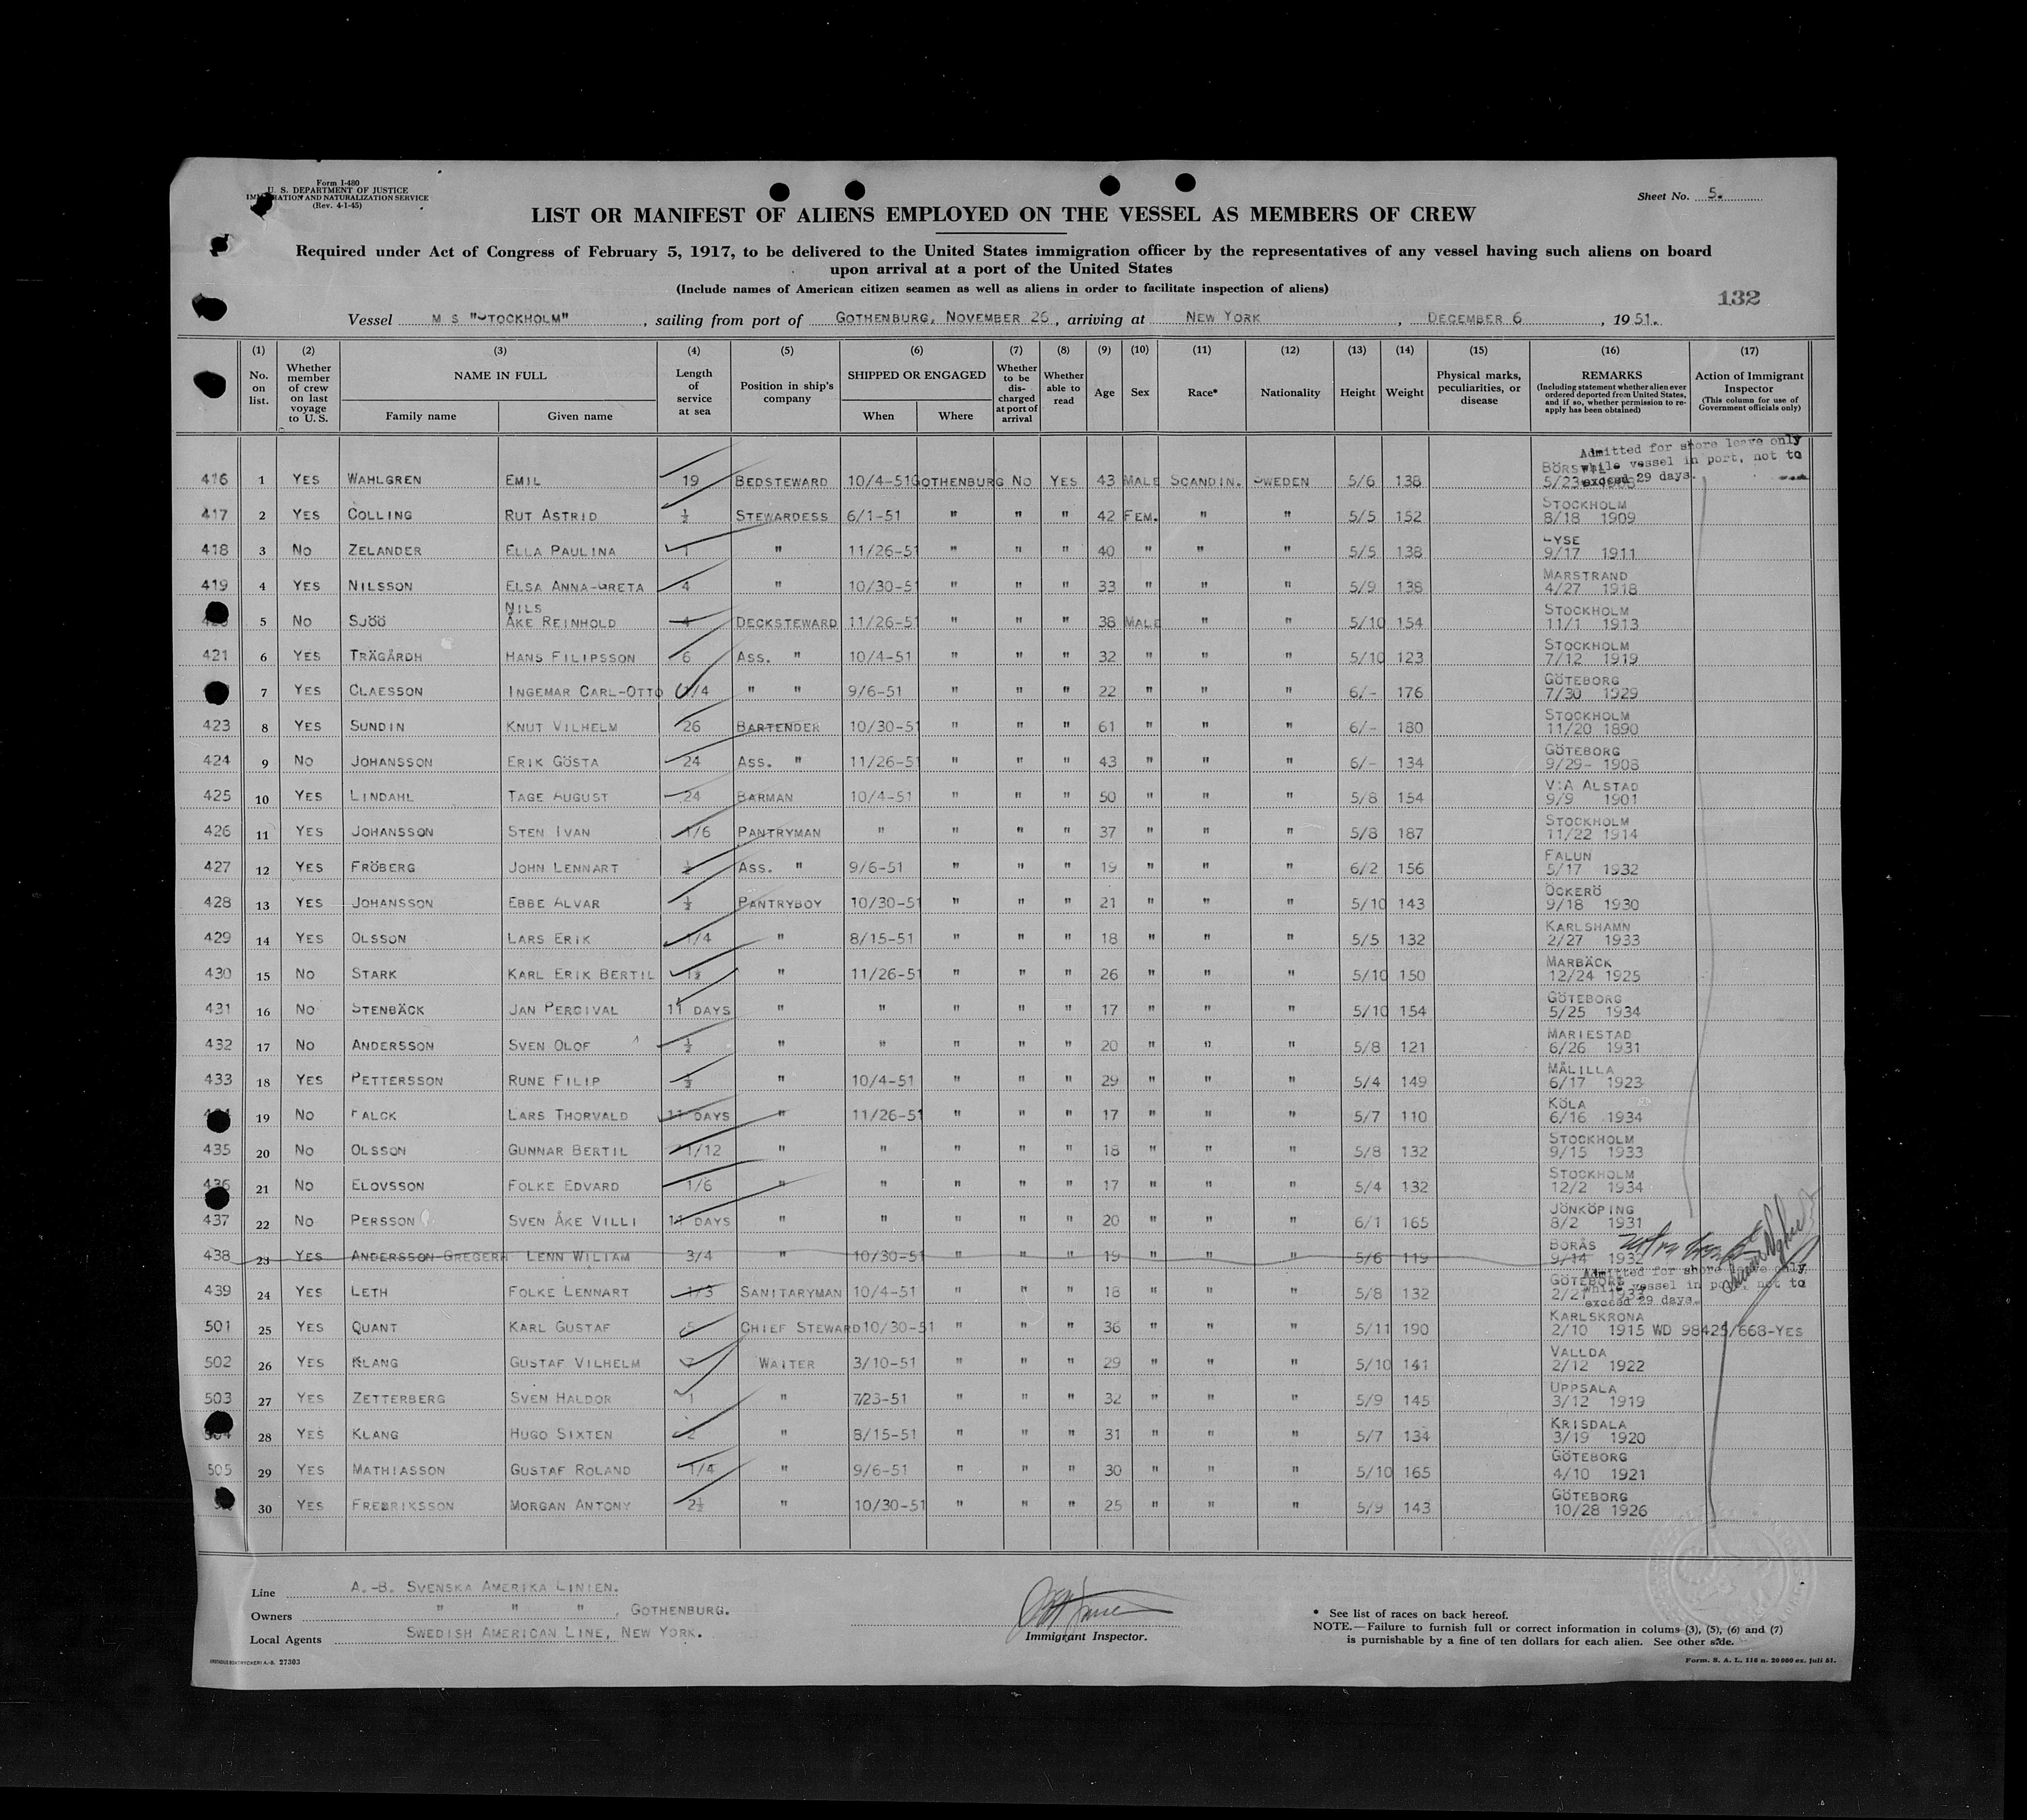 Form I-480
U. S. DEPARTMENT OF JUSTICE
IMMIGRATION AND NATURALIZATION SERVICE
(Rev. 4-1-45)
Sheet No. 5.
LIST OR MANIFEST OF ALIENS EMPLOYED ON THE VESSEL AS MEMBERS OF CREW
Required under Act of Congress of February 5, 1917, to be delivered to the United States immigration officer by the representatives of any vessel having such aliens on board
upon arrival at a port of the United States
(Include names of American citizen seamen as well as aliens in order to facilitate inspection of aliens)
132
Vessel M S "STOCKHOLM", sailing from port of GOTHENBURG, NOVEMBER 26, arriving at NEW YORK, DECEMBER 6, 1951.
(1) No. on list. (2) Whether member of crew on last voyage to U. S. (3) NAME IN FULL Family name Given name (4) Length of service at sea (5) Position in ship's company (6) SHIPPED OR ENGAGED When Where (7) Whether to be discharged at port of arrival (8) Whether able to read (9) Age (10) Sex (11) Race* (12) Nationality (13) Height (14) Weight (15) Physical marks, peculiarities, or disease (16) REMARKS (Including statement whether alien ever ordered deported from United States, and if so, whether permission to reapply has been obtained) (17) Action of Immigrant Inspector (This column for use of Government officials only)
Admitted for shore leave only
while vessel in port, not to
exceed 29 days.
416 1 YES WAHLGREN EMIL 19 BEDSTEWARD 10/4-51 GOTHENBURG NO YES 43 MALE SCANDIN. SWEDEN 5/6 138 5/23
417 2 YES COLLING RUT ASTRID ½ STEWARDESS 6/1-51 " " " 42 FEM. " " 5/5 152 STOCKHOLM 8/18 1909
418 3 NO ZELANDER ELLA PAULINA 1 " 11/26-51 " " " 40 " " " 5/5 138 LYSE 9/17 1911
419 4 YES NILSSON ELSA ANNA-GRETA 4 " 10/30-51 " " " 33 " " " 5/9 138 MARSTRAND 4/27 1918
5 NO SJÖÖ NILS ÅKE REINHOLD 4 DECKSTEWARD 11/26-51 " " " 38 MALE " " 5/10 154 STOCKHOLM 11/1 1913
421 6 YES TRÄGÅRDH HANS FILIPSSON 6 ASS. " 10/4-51 " " " 32 " " " 5/10 123 STOCKHOLM 7/12 1919
7 YES CLAESSON INGEMAR CARL-OTTO 1/4 " " 9/6-51 " " " 22 " " " 6/- 176 GÖTEBORG 7/30 1929
423 8 YES SUNDIN KNUT VILHELM 26 BARTENDER 10/30-51 " " " 61 " " " 6/- 180 STOCKHOLM 11/20 1890
424 9 NO JOHANSSON ERIK GÖSTA 24 ASS. " 11/26-51 " " " 43 " " " 6/- 134 GÖTEBORG 9/29- 1908
425 10 YES LINDAHL TAGE AUGUST 24 BARMAN 10/4-51 " " " 50 " " " 5/8 154 V:A ALSTAD 9/9 1901
426 11 YES JOHANSSON STEN IVAN 1/6 PANTRYMAN " " " " 37 " " " 5/8 187 STOCKHOLM 11/22 1914
427 12 YES FRÖBERG JOHN LENNART ½ ASS. " 9/6-51 " " " 19 " " " 6/2 156 FALUN 5/17 1932
428 13 YES JOHANSSON EBBE ALVAR ½ PANTRYBOY 10/30-51 " " " 21 " " " 5/10 143 ÖCKERÖ 9/18 1930
429 14 YES OLSSON LARS ERIK 1/4 " 8/15-51 " " " 18 " " " 5/5 132 KARLSHAMN 2/27 1933
430 15 NO STARK KARL ERIK BERTIL 1½ " 11/26-51 " " " 26 " " " 5/10 150 MARBÄCK 12/24 1925
431 16 NO STENBÄCK JAN PERCIVAL 11 DAYS " " " " " 17 " " " 5/10 154 GÖTEBORG 5/25 1934
432 17 NO ANDERSSON SVEN OLOF ½ " " " " " 20 " " " 5/8 121 MARIESTAD 6/26 1931
433 18 YES PETTERSSON RUNE FILIP ½ " 10/4-51 " " " 29 " " " 5/4 149 MÅLILLA 6/17 1923
19 NO FALCK LARS THORVALD 11 DAYS " 11/26-51 " " " 17 " " " 5/7 110 KÖLA 6/16 1934
435 20 NO OLSSON GUNNAR BERTIL 1/12 " " " " " 18 " " " 5/8 132 STOCKHOLM 9/15 1933
436 21 NO ELOVSSON FOLKE EDVARD 1/6 " " " " " 17 " " " 5/4 132 STOCKHOLM 12/2 1934
437 22 NO PERSSON SVEN ÅKE VILLI 11 DAYS " " " " " 20 " " " 6/1 165 JÖNKÖPING 8/2 1931
438 23 YES ANDERSSON-GREGERH LENN WILIAM 3/4 " 10/30-51 " " " 19 " " " 5/6 119 BORÅS 9/14 1932
Admitted for shore leave only
while vessel in port, not to
exceed 29 days.
439 24 YES LETH FOLKE LENNART 1/3 SANITARYMAN 10/4-51 " " " 18 " " " 5/8 132 GÖTEBORG 2/27 1933
501 25 YES QUANT KARL GUSTAF 5 CHIEF STEWARD 10/30-51 " " " 36 " " " 5/11 190 KARLSKRONA 2/10 1915 WD 98425/668-YES
502 26 YES KLANG GUSTAF VILHELM 7 WAITER 3/10-51 " " " 29 " " " 5/10 141 VALLDA 2/12 1922
503 27 YES ZETTERBERG SVEN HALDOR 1 " 7/23-51 " " " 32 " " " 5/9 145 UPPSALA 3/12 1919
28 YES KLANG HUGO SIXTEN 2 " 8/15-51 " " " 31 " " " 5/7 134 KRISDALA 3/19 1920
505 29 YES MATHIASSON GUSTAF ROLAND 1/4 " 9/6-51 " " " 30 " " " 5/10 165 GÖTEBORG 4/10 1921
30 YES FREDRIKSSON MORGAN ANTONY 2½ " 10/30-51 " " " 25 " " " 5/9 143 GÖTEBORG 10/28 1926
Line A.-B. SVENSKA AMERIKA LINIEN.
Owners " " ", GOTHENBURG.
Local Agents SWEDISH AMERICAN LINE, NEW YORK.
Immigrant Inspector.
* See list of races on back hereof.
NOTE.—Failure to furnish full or correct information in colums (3), (5), (6) and (7)
is punishable by a fine of ten dollars for each alien. See other side.
27303
Form. S. A. L. 116 n. 20 000 ex. juli 51.